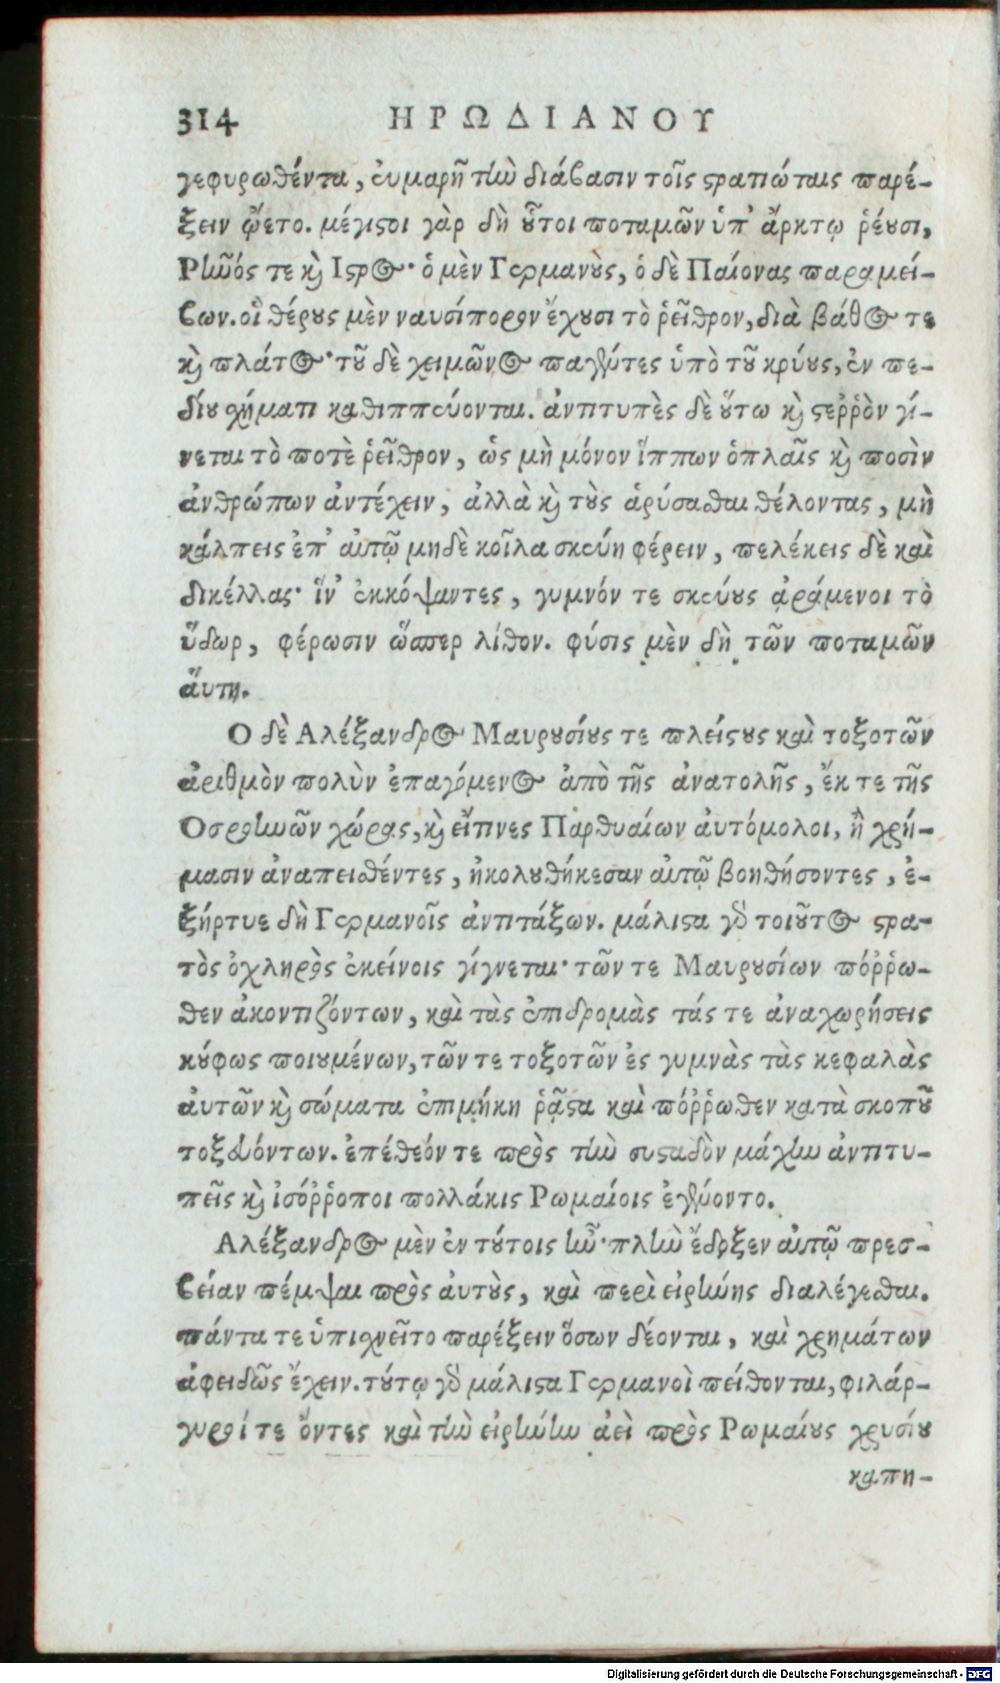 314 ΗΡΩΔΙΑΝΟΥ
γεφυρωθέντα, εὐμαρῆ τὴν διάβασιν τοῖς στρατιώταις παρέ-
ξειν ᾤετο. μέγιστοι γὰρ δὴ οὗτοι ποταμῶν ὑπ' ἄρκτῳ ῥέουσι,
Ρῆνός τε καὶ Ιστρος· ὁ μὲν Γερμανοὺς, ὁ δὲ Παίονας παραμεί-
βων. οἳ θέρους μὲν ναυσίπορον ἔχουσι τὸ ῥεῖθρον, διὰ βάθος τε
καὶ πλάτος· τοῦ δὲ χειμῶνος παγέντες ὑπὸ τοῦ κρύους, ἐν πε-
δίου σχήματι καθιππεύονται. ἀντιτυπὲς δὲ οὕτω καὶ στεῤῥὸν γί-
νεται τὸ ποτὲ ῥεῖθρον, ὡς μὴ μόνον ἵππων ὁπλαῖς καὶ ποσὶν
ἀνθρώπων ἀντέχειν, ἀλλὰ καὶ τοὺς ἀρύσασθαι θέλοντας, μὴ
κάλπεις ἐπ' αὐτῷ μηδὲ κοῖλα σκεύη φέρειν, πελέκεις δὲ καὶ
δικέλλας· ἵν' ἐκκόψαντες, γυμνόν τε σκεύους ἀράμενοι τὸ
ὕδωρ, φέρωσιν ὥσπερ λίθον. φύσις μὲν δὴ τῶν ποταμῶν
ἅυτη.
Ο δὲ Αλέξανδρος Μαυρουσίους τε πλείστους καὶ τοξοτῶν
ἀριθμὸν πολὺν ἐπαγόμενος ἀπὸ τῆς ἀνατολῆς, ἔκ τε τῆς
Οσροηνῶν χώρας, καὶ εἴ τινες Παρθυαίων ἀυτόμολοι, ἢ χρή-
μασιν ἀναπεισθέντες, ἠκολουθήκεσαν αὐτῷ βοηθήσοντες, ἐ-
ξήρτυε δὴ Γερμανοῖς ἀντιτάξων. μάλιστα γὰρ τοιοῦτος στρα-
τὸς ὀχληρὸς ἐκείνοις γίγνεται· τῶν τε Μαυρουσίων πόῤῥω-
θεν ἀκοντιζόντων, καὶ τὰς ἐπιδρομὰς τάς τε ἀναχωρήσεις
κούφως ποιουμένων, τῶν τε τοξοτῶν ἐς γυμνὰς τὰς κεφαλὰς
ἀυτῶν καὶ σώματα ἐπιμήκη ῥᾷστα καὶ πόῤῥωθεν κατὰ σκοποῦ
τοξευόντων. ἐπέθεόν τε πρὸς τὴν συσταδὸν μάχην ἀντιτυ-
πεῖς καὶ ἰσόῤῥοποι πολλάκις Ρωμαίοις ἐγένοντο.
Αλέξανδρος μὲν ἐν τούτοις ἦν· πλὴν ἔδοξεν αὐτῷ πρεσ-
βείαν πέμψαι πρὸς ἀυτοὺς, καὶ περὶ εἰρήνης διαλέγεσθαι.
πάντα τε ὑπισχνεῖτο παρέξειν ὅσων δέονται, καὶ χρημάτων
ἀφειδῶς ἔχειν. τούτῳ γὰρ μάλιστα Γερμανοὶ πείθονται, φιλάρ-
γυροί τε ὄντες καὶ τὴν εἰρήνην ἀεὶ πρὸς Ρωμαίους χρυσίου
καπη-
Digitalisierung gefördert durch die Deutsche Forschungsgemeinschaft - DFG